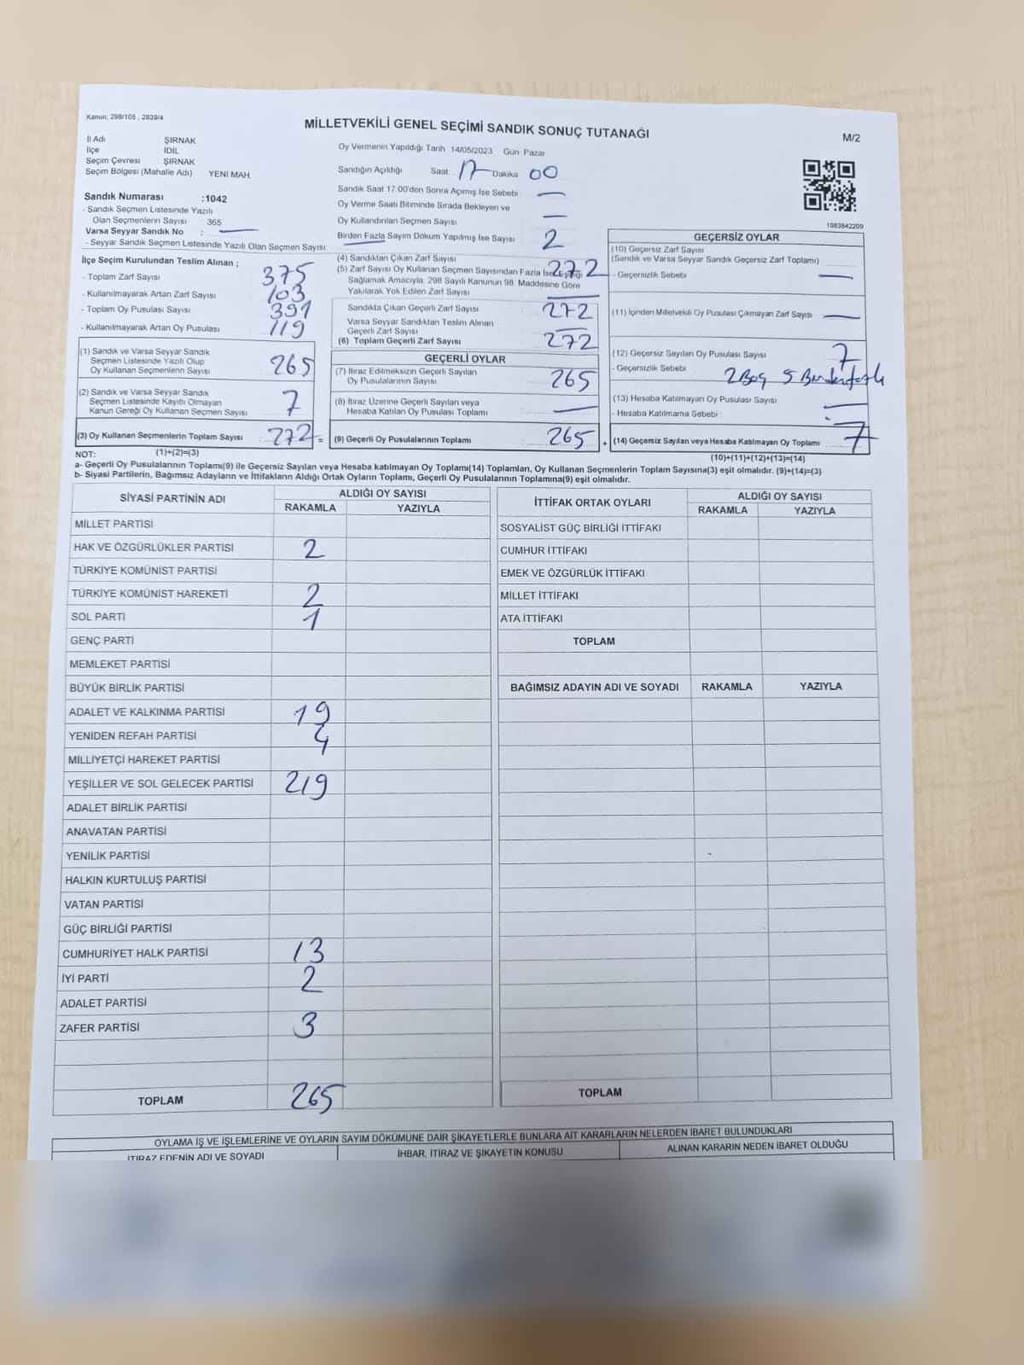 Kanun; 298/105 ; 2839/4
MİLLETVEKİLİ GENEL SEÇİMİ SANDIK SONUÇ TUTANAĞI
M/2
İl Adı ŞIRNAK
İlçe İDİL
Seçim Çevresi ŞIRNAK
Seçim Bölgesi (Mahalle Adı) YENİ MAH.
Sandık Numarası :1042
- Sandık Seçmen Listesinde Yazılı
Olan Seçmenlerin Sayısı 365
Varsa Seyyar Sandık No : —
- Seyyar Sandık Seçmen Listesinde Yazılı Olan Seçmen Sayısı
Oy Vermenin Yapıldığı Tarih 14/05/2023 Gün Pazar
Sandığın Açıldığı Saat 17 Dakika 00
Sandık Saat 17:00'den Sonra Açılmış İse Sebebi —
Oy Verme Saati Bitiminde Sırada Bekleyen ve
Oy Kullandırılan Seçmen Sayısı —
Birden Fazla Sayım Döküm Yapılmış İse Sayısı 2
1083842209
İlçe Seçim Kurulundan Teslim Alınan ;
- Toplam Zarf Sayısı 375
- Kullanılmayarak Artan Zarf Sayısı 103
- Toplam Oy Pusulası Sayısı 391
- Kullanılmayarak Artan Oy Pusulası 119
(1) Sandık ve Varsa Seyyar Sandık
Seçmen Listesinde Yazılı Olup
Oy Kullanan Seçmenlerin Sayısı 265
(2) Sandık ve Varsa Seyyar Sandık
Seçmen Listesinde Kayıtlı Olmayan
Kanun Gereği Oy Kullanan Seçmen Sayısı 7
(3) Oy Kullanan Seçmenlerin Toplam Sayısı 272 =
(1)+(2)=(3)
(4) Sandıktan Çıkan Zarf Sayısı 272
(5) Zarf Sayısı Oy Kullanan Seçmen Sayısından Fazla İse
Sağlamak Amacıyla, 298 Sayılı Kanunun 98. Maddesine Göre
Yakılarak Yok Edilen Zarf Sayısı —
Sandıkta Çıkan Geçerli Zarf Sayısı 272
Varsa Seyyar Sandıktan Teslim Alınan
Geçerli Zarf Sayısı —
(6) Toplam Geçerli Zarf Sayısı 272
GEÇERLİ OYLAR
(7) İtiraz Edilmeksizin Geçerli Sayılan
Oy Pusulalarının Sayısı 265
(8) İtiraz Üzerine Geçerli Sayılan veya
Hesaba Katılan Oy Pusulası Toplamı —
(9) Geçerli Oy Pusulalarının Toplamı 265 +
GEÇERSİZ OYLAR
(10) Geçersiz Zarf Sayısı
(Sandık ve Varsa Seyyar Sandık Geçersiz Zarf Toplamı)
- Geçersizlik Sebebi —
(11) İçinden Milletvekili Oy Pusulası Çıkmayan Zarf Sayısı —
(12) Geçersiz Sayılan Oy Pusulası Sayısı 7
- Geçersizlik Sebebi 2 Boş 5 Birden fazla
(13) Hesaba Katılmayan Oy Pusulası Sayısı —
- Hesaba Katılmama Sebebi : —
(14) Geçersiz Sayılan veya Hesaba Katılmayan Oy Toplamı 7
(10)+(11)+(12)+(13)=(14)
NOT:
a- Geçerli Oy Pusulalarının Toplamı(9) ile Geçersiz Sayılan veya Hesaba katılmayan Oy Toplamı(14) Toplamları, Oy Kullanan Seçmenlerin Toplam Sayısına(3) eşit olmalıdır. (9)+(14)=(3)
b- Siyasi Partilerin, Bağımsız Adayların ve İttifakların Aldığı Ortak Oyların Toplamı, Geçerli Oy Pusulalarının Toplamına(9) eşit olmalıdır.
SİYASİ PARTİNİN ADI ALDIĞI OY SAYISI
RAKAMLA YAZIYLA
MİLLET PARTİSİ
HAK VE ÖZGÜRLÜKLER PARTİSİ 2
TÜRKİYE KOMÜNİST PARTİSİ
TÜRKİYE KOMÜNİST HAREKETİ 2
SOL PARTİ 1
GENÇ PARTİ
MEMLEKET PARTİSİ
BÜYÜK BİRLİK PARTİSİ
ADALET VE KALKINMA PARTİSİ 19
YENİDEN REFAH PARTİSİ 4
MİLLİYETÇİ HAREKET PARTİSİ
YEŞİLLER VE SOL GELECEK PARTİSİ 219
ADALET BİRLİK PARTİSİ
ANAVATAN PARTİSİ
YENİLİK PARTİSİ
HALKIN KURTULUŞ PARTİSİ
VATAN PARTİSİ
GÜÇ BİRLİĞİ PARTİSİ
CUMHURİYET HALK PARTİSİ 13
İYİ PARTİ 2
ADALET PARTİSİ
ZAFER PARTİSİ 3
TOPLAM 265
İTTİFAK ORTAK OYLARI ALDIĞI OY SAYISI
RAKAMLA YAZIYLA
SOSYALİST GÜÇ BİRLİĞİ İTTİFAKI
CUMHUR İTTİFAKI
EMEK VE ÖZGÜRLÜK İTTİFAKI
MİLLET İTTİFAKI
ATA İTTİFAKI
TOPLAM
BAĞIMSIZ ADAYIN ADI VE SOYADI RAKAMLA YAZIYLA
TOPLAM
OYLAMA İŞ VE İŞLEMLERİNE VE OYLARIN SAYIM DÖKÜMÜNE DAİR ŞİKAYETLERLE BUNLARA AİT KARARLARIN NELERDEN İBARET BULUNDUKLARI
İTİRAZ EDENİN ADI VE SOYADI İHBAR, İTİRAZ VE ŞİKAYETİN KONUSU ALINAN KARARIN NEDEN İBARET OLDUĞU